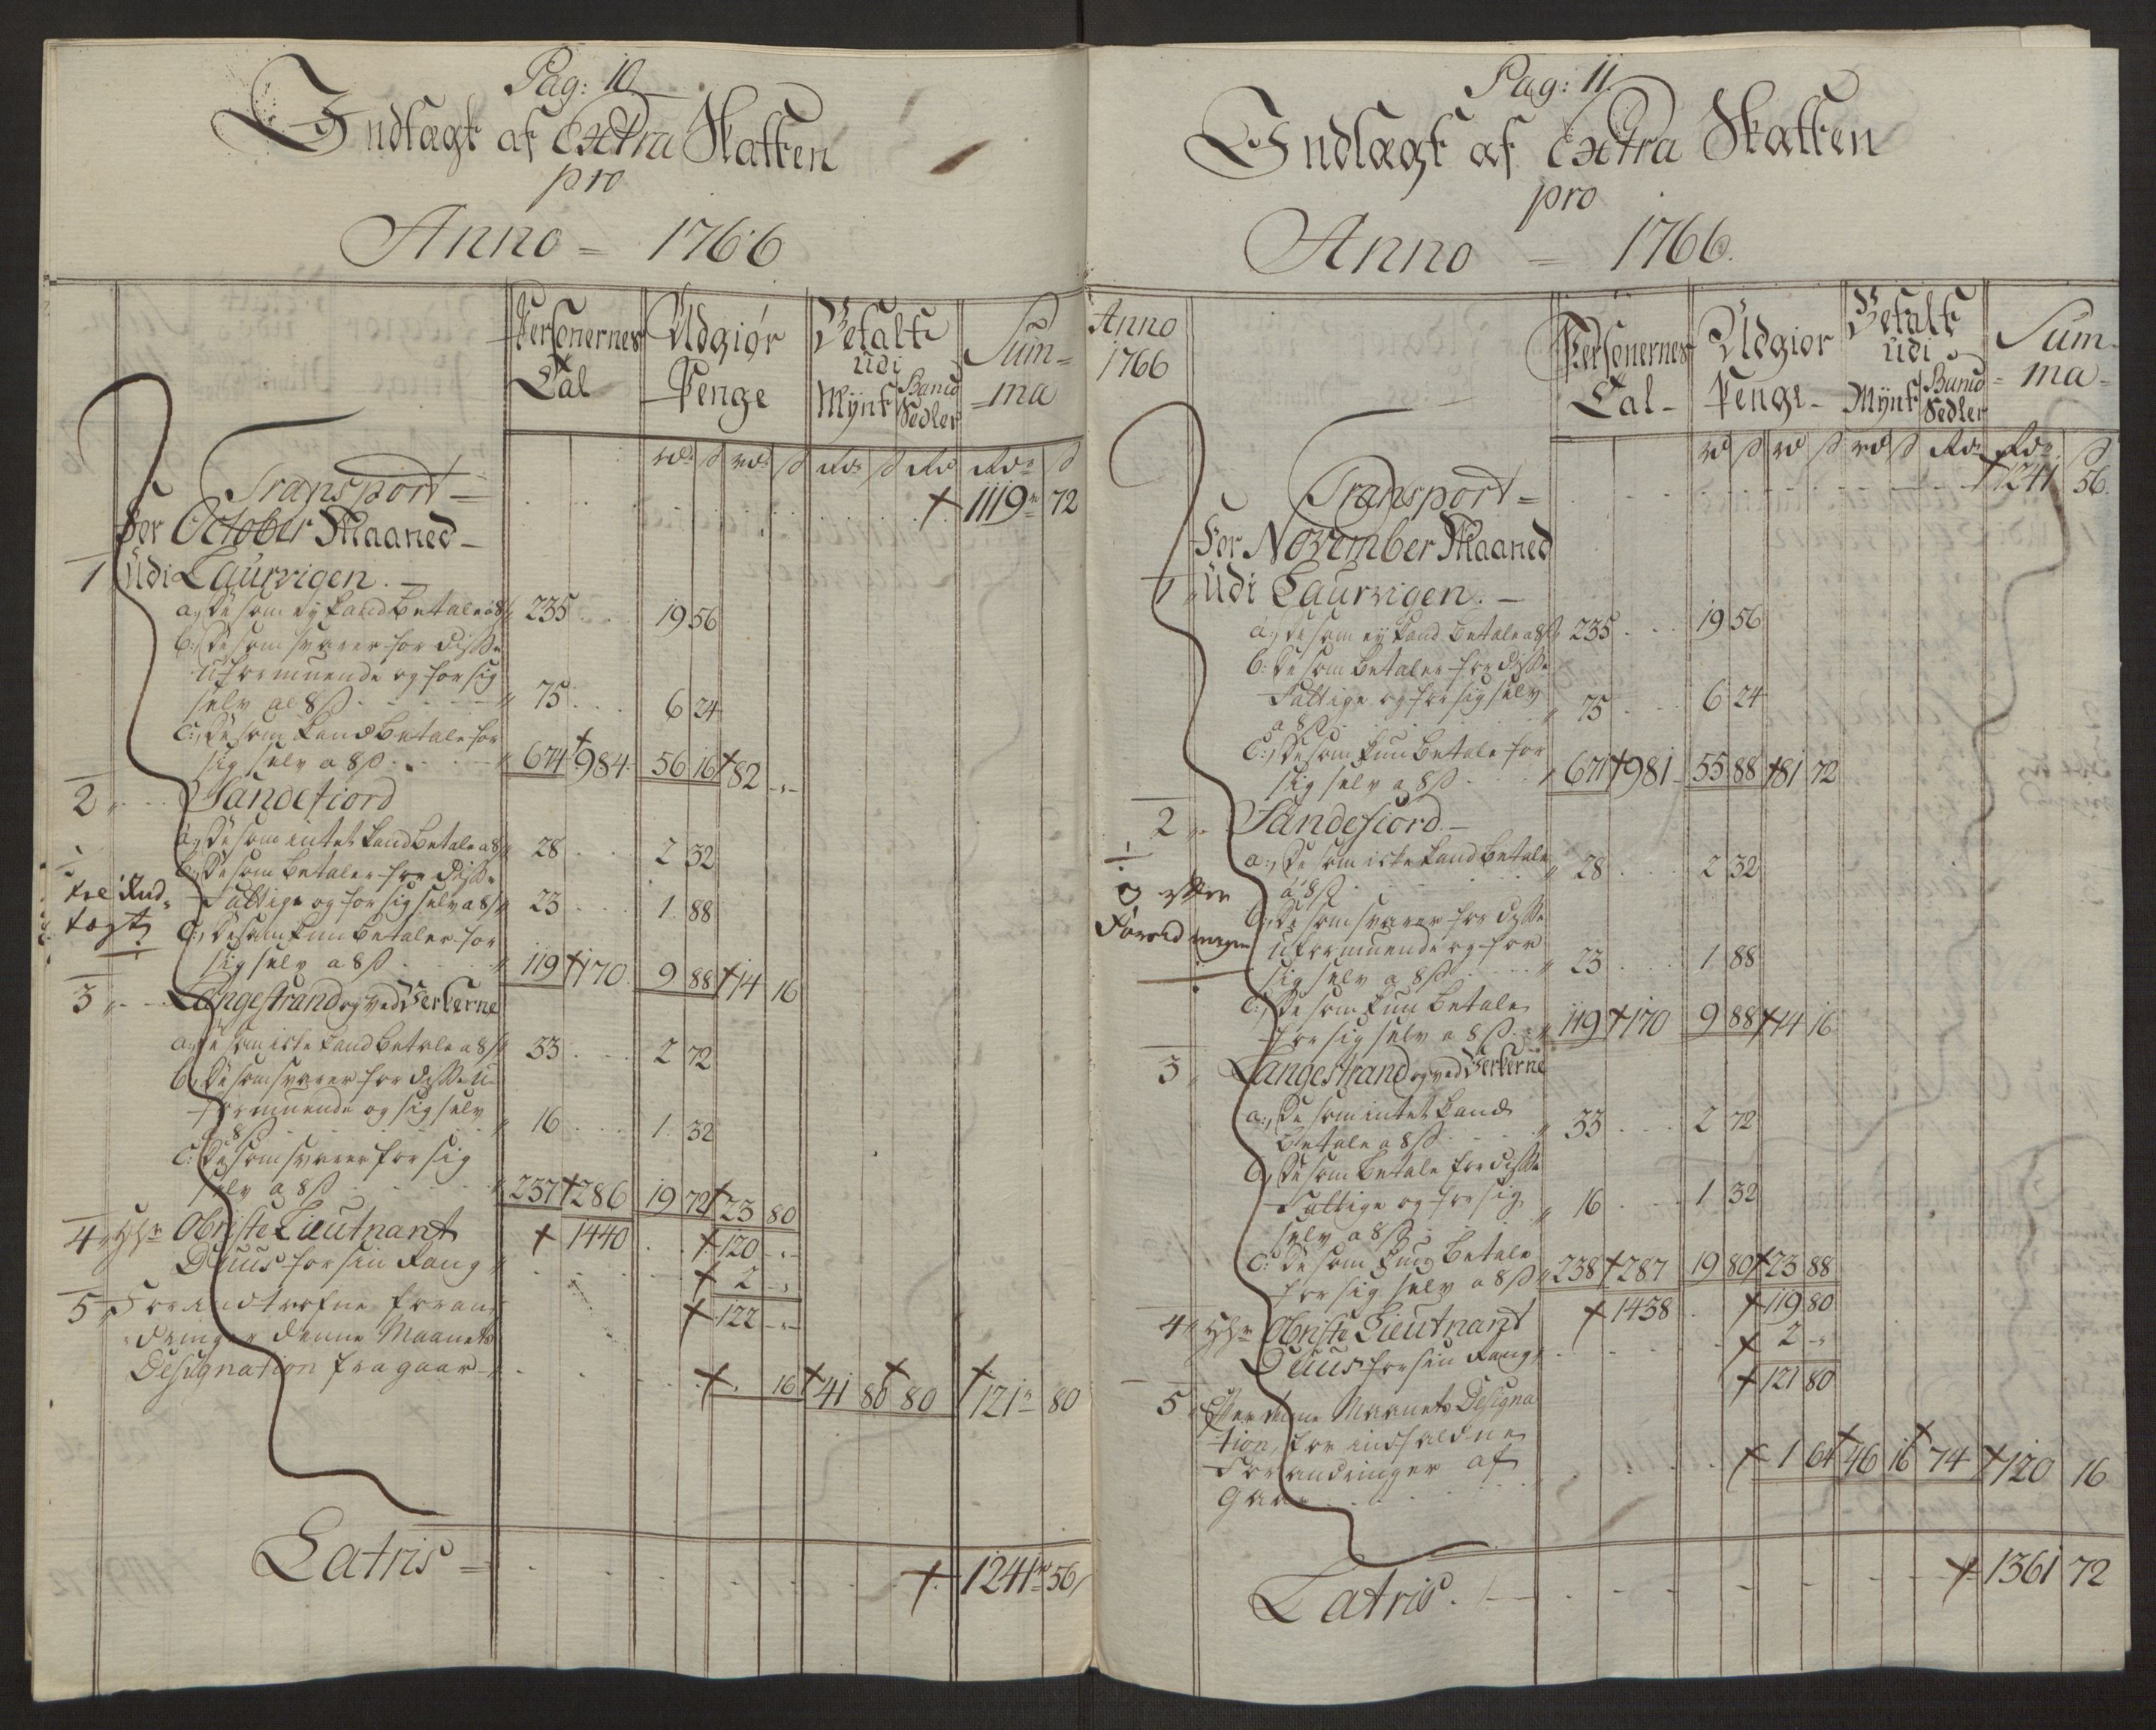 Pag: 10
Indtægt af Extra Skatten
pro
Anno = 1766
Personernes Tal
Udgiør Penge
Betalt udi
Mynt Banco Sedler
Sum= =ma
rdr ß rdr ß Rdr ß Rd Rdr ß
Transport = † 1119 72
For October Maaned
1 Udi Laurvigen.
a, De som ey kand betale a 8ß 235 19 56
b:, De som svarer for disse
uformuende og for sig
selv al 8 ß 75 6 24
C:, De som kand betale for
sig selv a 8 ß 674 † 984 56 16 † 82 "
2 Sandefiord
a, De som intet kand betale a 8ß 28 2 32
b:, De som betaler for disse
Fattige og for sig selv a 8ß 23 1 88
C:, De som kun betaler for
sig selv a 8 ß 119 † 170 9 88 † 14 16
3 Langestrand og ved Verkerne
a:, De som icke kand betale a 8ß 33 2 72
b, De som svarer for disse u-
formuende og sig selv
a 8ß 16 1 32
C: De som svarer for sig
selv a 8ß 237 † 286 19 72 † 23 80
† 1440 † 120 "
4 Hr Obriste Lieutnant
Duus for sin Rang † 2 "
† 122 "
5 For indtrofne foran-
dringer denne Maaneds
Designation fragaar † " 16 † 41 80 † 80 † 121 80
Latris = † 1241 56
Pag: 11.
Indtægt af Extra Skatten
pro
Anno = 1766.
Anno
1766
Personernes Tal
Udgior Penge
Betalt udi
Mynt Banco Sedler
Sum= ma
rd ß rd ß rd ß Rdr Rdr ß
Transport = † 1241 56.
For November Maaned
1 Udi Laurvigen.
a:, De som ey kand betale a 8ß 235 19 56
b: De som betaler for disse
Fattige og for sig selv
a 8ß 75 6 24
C:, De som kun betale for
sig selv a 8 ß 671 † 981 55 88 † 81 72
2 Sandefiord
a:, De som icke kand betale
a 8ß 28 2 32
b:, De som svarer for disse
uformuende og for
sig selv a 8ß 23 1 88
C:, De som kun betale
for sig selv a 8 ß 119 † 170 9 88 † 14 16
3 Langestrand og ved Verkerne
a:, De som intet kand
betale a 8ß 33 2 72
b, De som betale for disse
Fattige og for sig
selv a 8ß 16 1 32
C: De som kun betale
for sig selv a 8ß 238 † 287 19 80 † 23 88
† 1438 † 119 80
4 Hr Obriste Lieutnant
Duus for sin Rang † 2 "
† 121 80
5 Efter denne Maaneds Designa
tion, for indfaldne
Forandringer af
Gaar † 1 64 † 46 16 † 74 † 120 16
Latris. † 1361 72